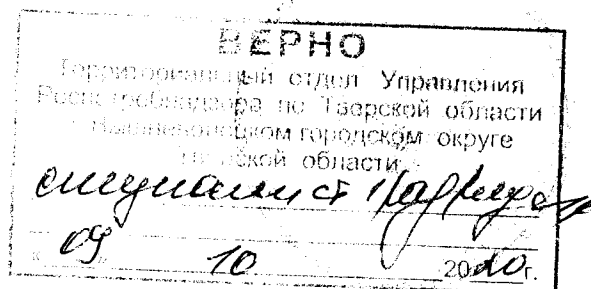 ВЕРНО
Территориальный отдел Управления
Роспотребнадзора по Тверской области
Вышневолоцком городском округе
области
специалист
« 09 10 2020 г.